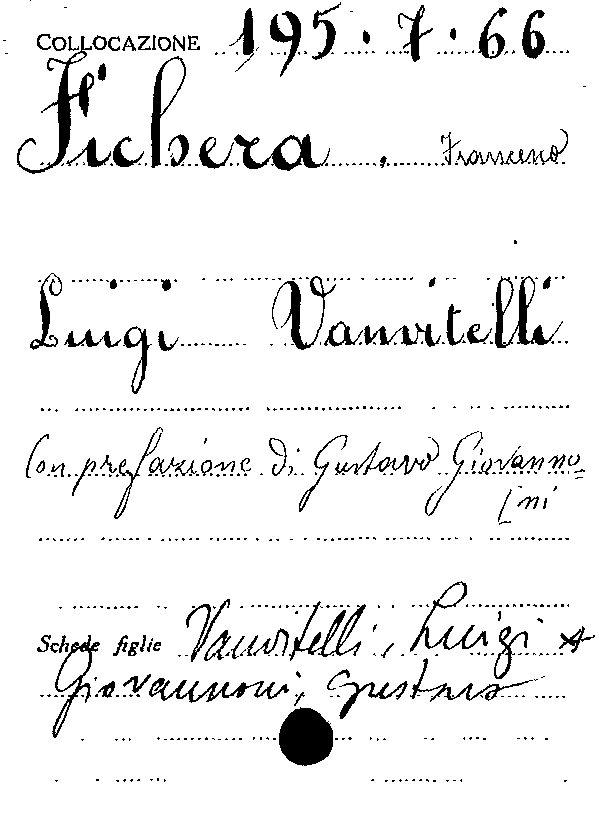 COLLOCAZIONE 195.7.66
Fichera . Francesco
Luigi Vanvitelli
Con prefazione di Gustavo Giovanno=
[ni
Schede figlie Vanvitelli, Luigi *
Giovannoni, Gustavo